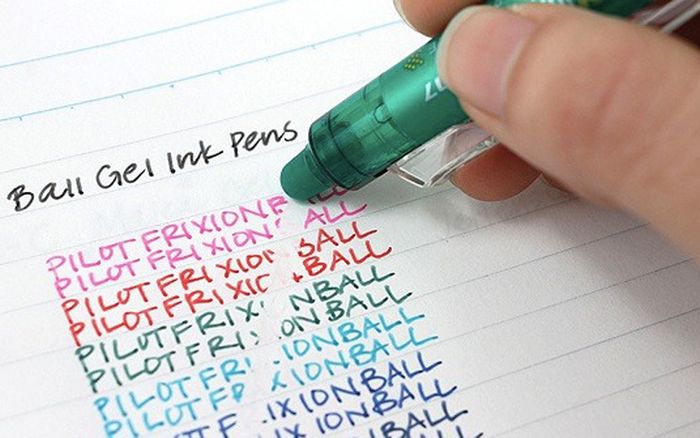 Ball Gel Ink Pens
PILOT FRIXION
PILOT FRIXION ALL
PILOT FRIXIO BALL
PILOT FRIXIO BALL
PILOT FRIX NBALL
PILOT FRI ON BALL
PILOT FRI IONBALL
PILOT FR XIONBALL
PILOT F IXIONBALL
IXIONBALL